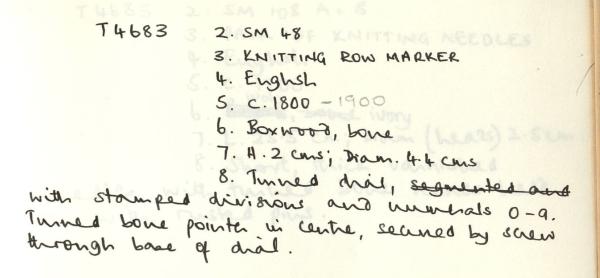 T4683 2. SM 48
3. KNITTING ROW MARKER
4. English
5. C. 1800 - 1900
6. Boxwood, bone
7. H. 2 cms; Diam. 4.4 cms
8. Turned dial, segmented and
with stamped divisions and numerals 0-9.
Turned bone pointer in centre, secured by screw
through base of dial.